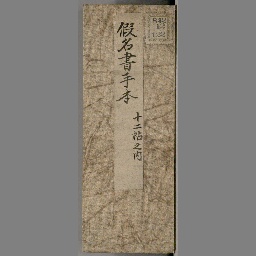 假名書手本
十二帖之内